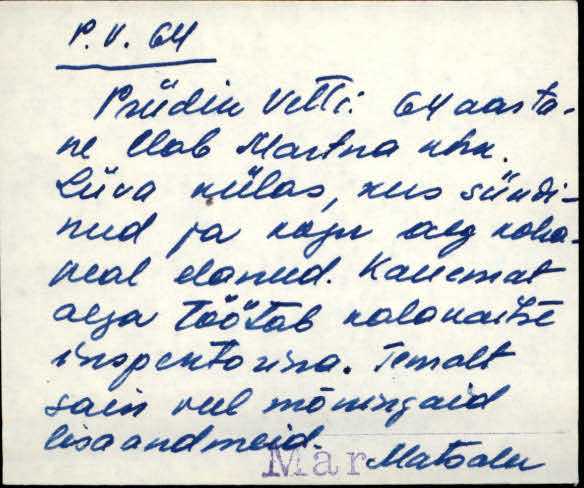 P. V. 64
Priidik Vetti. 64 aasta-
ne Elab Martna khk.
Liiva külas, kus sündi-
nud ja kogu aeg koha-
peal elanud. Kauemat
aega töötab kalakaitse
inspektorina. Temalt
sain veel mõningaid
lisaandmeid.
Mar Matsalu